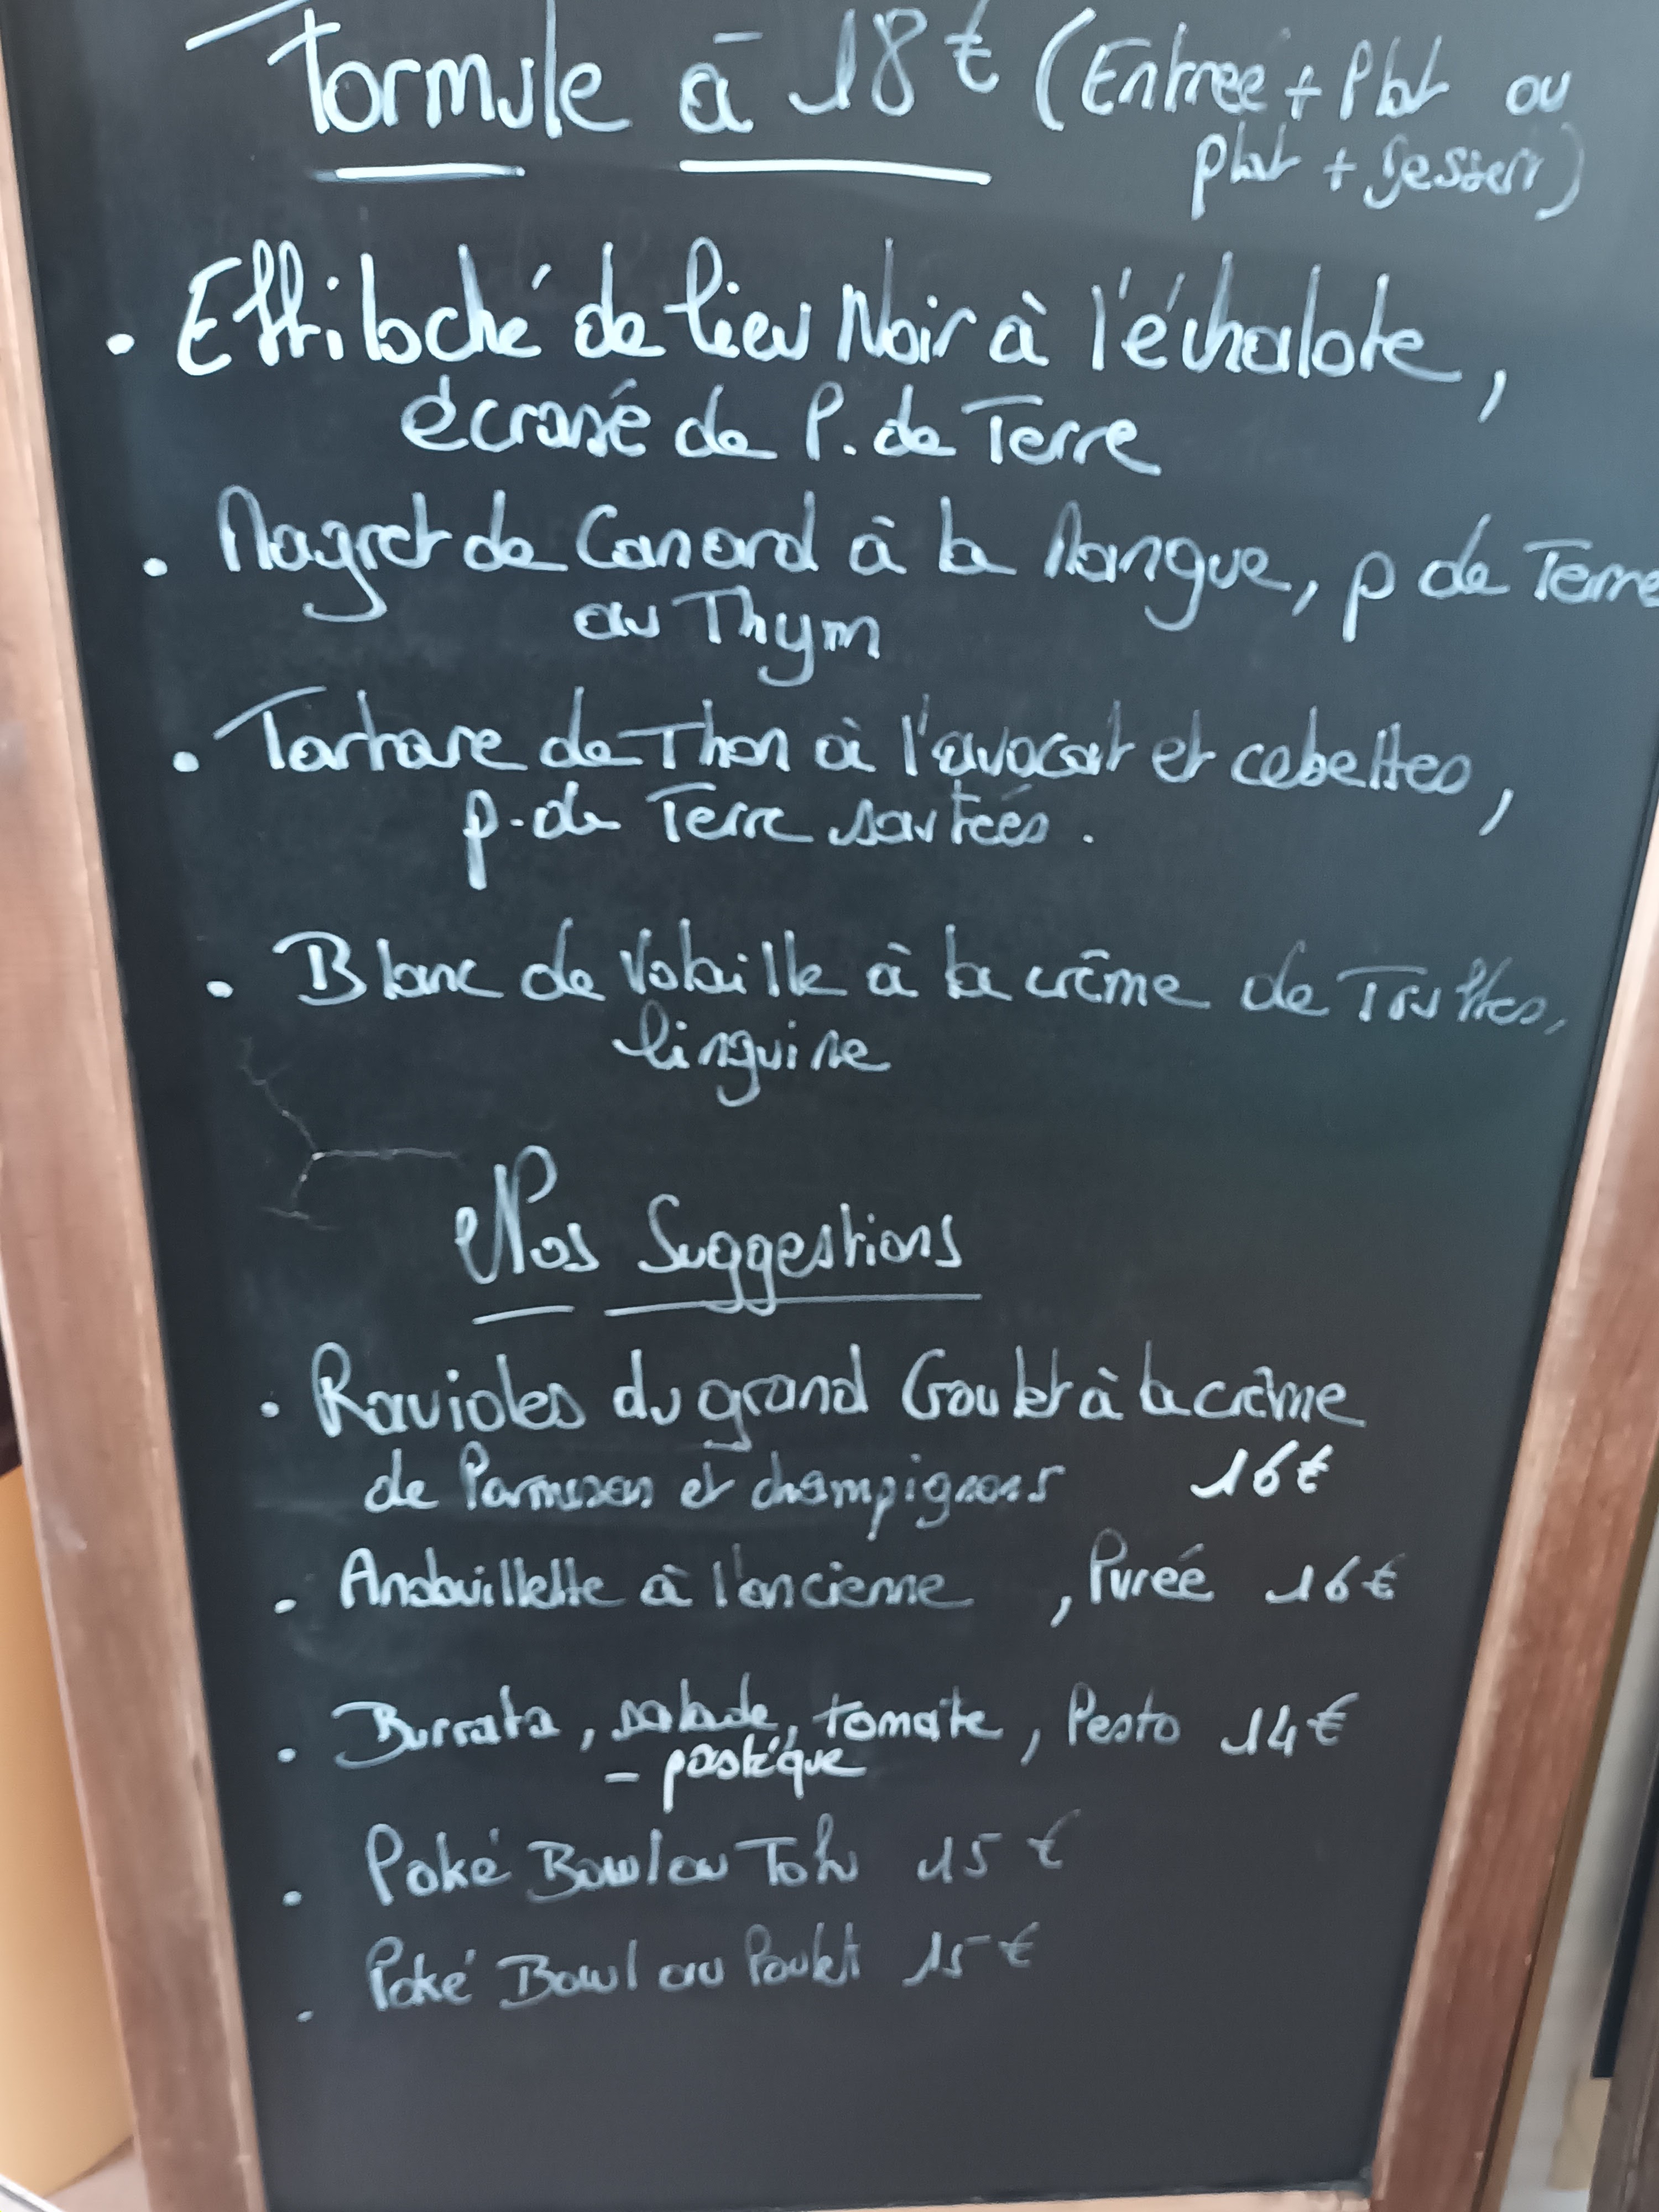 Formule à 18€ (Entrée + Plat ou
plat + dessert)
• Effiloché de lieu Noir à l'échalote,
écrasé de P. de Terre
• Magret de Canard à la Mangue, p de Terre
au Thym
• Tartare de Thon à l'avocat et cebettes,
p. de Terre sautées.
• Blanc de Volaille à la crème de Truffes,
linguine
Nos Suggestions
• Ravioles du grand Goulet à la crème
de Parmesan et champignons 16€
• Andouillette à l'ancienne , Purée 16€
• Burrata, salade, tomate, Pesto 14€
- pastèque
• Poké Bowl au Tofu 15€
• Poké Bowl au Poulet 15€